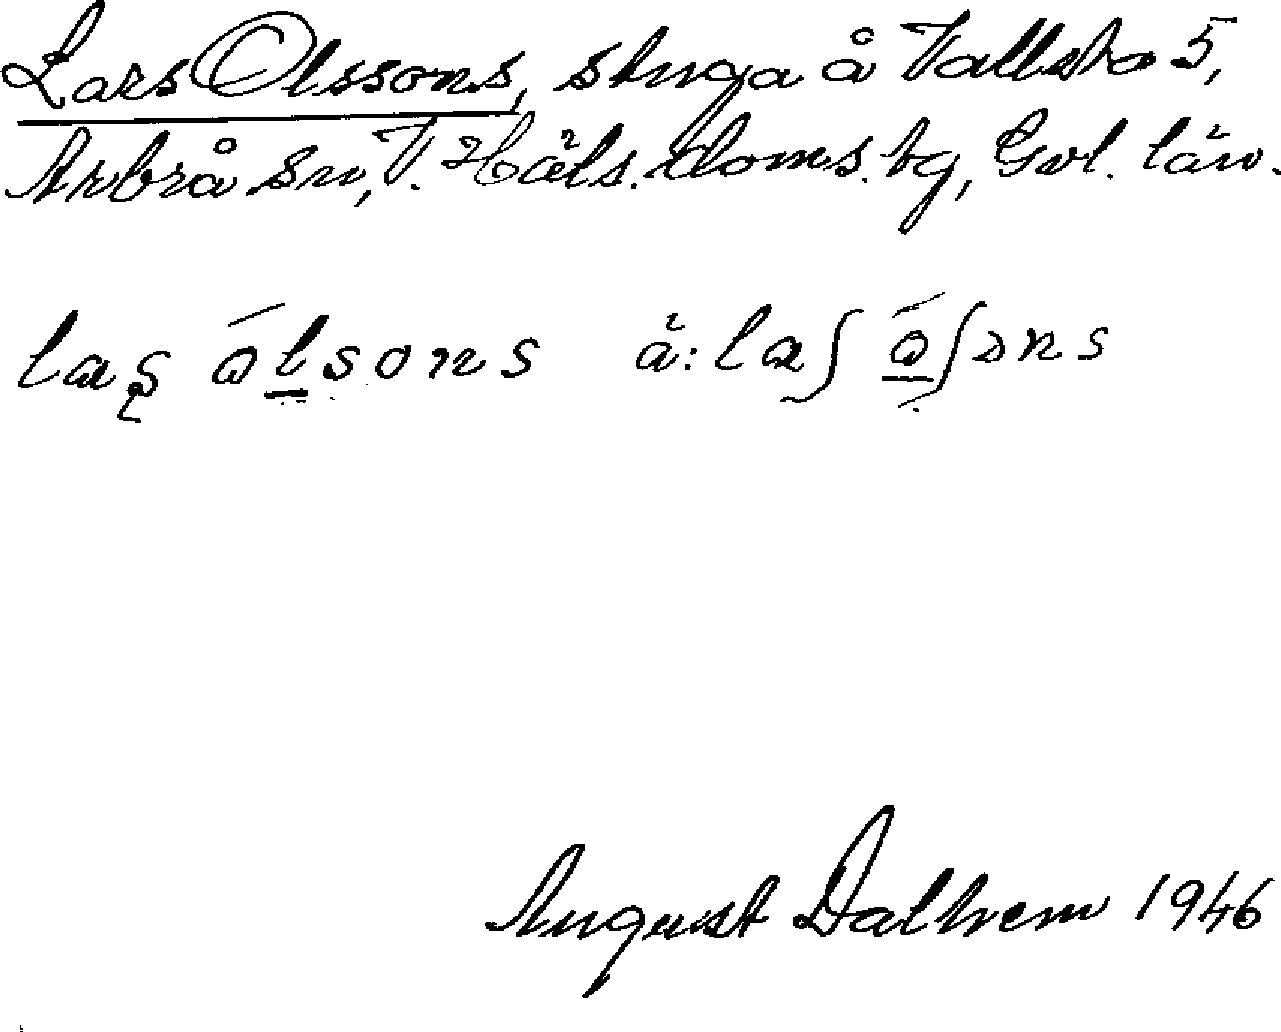 Lars Olssons, stuga å Vallsta 5,
Arbrå sn, V. Häls. doms. tg, Gvl. län.
laʂ ólsons ä: laʃ óʃɔns
August Dalhem 1946